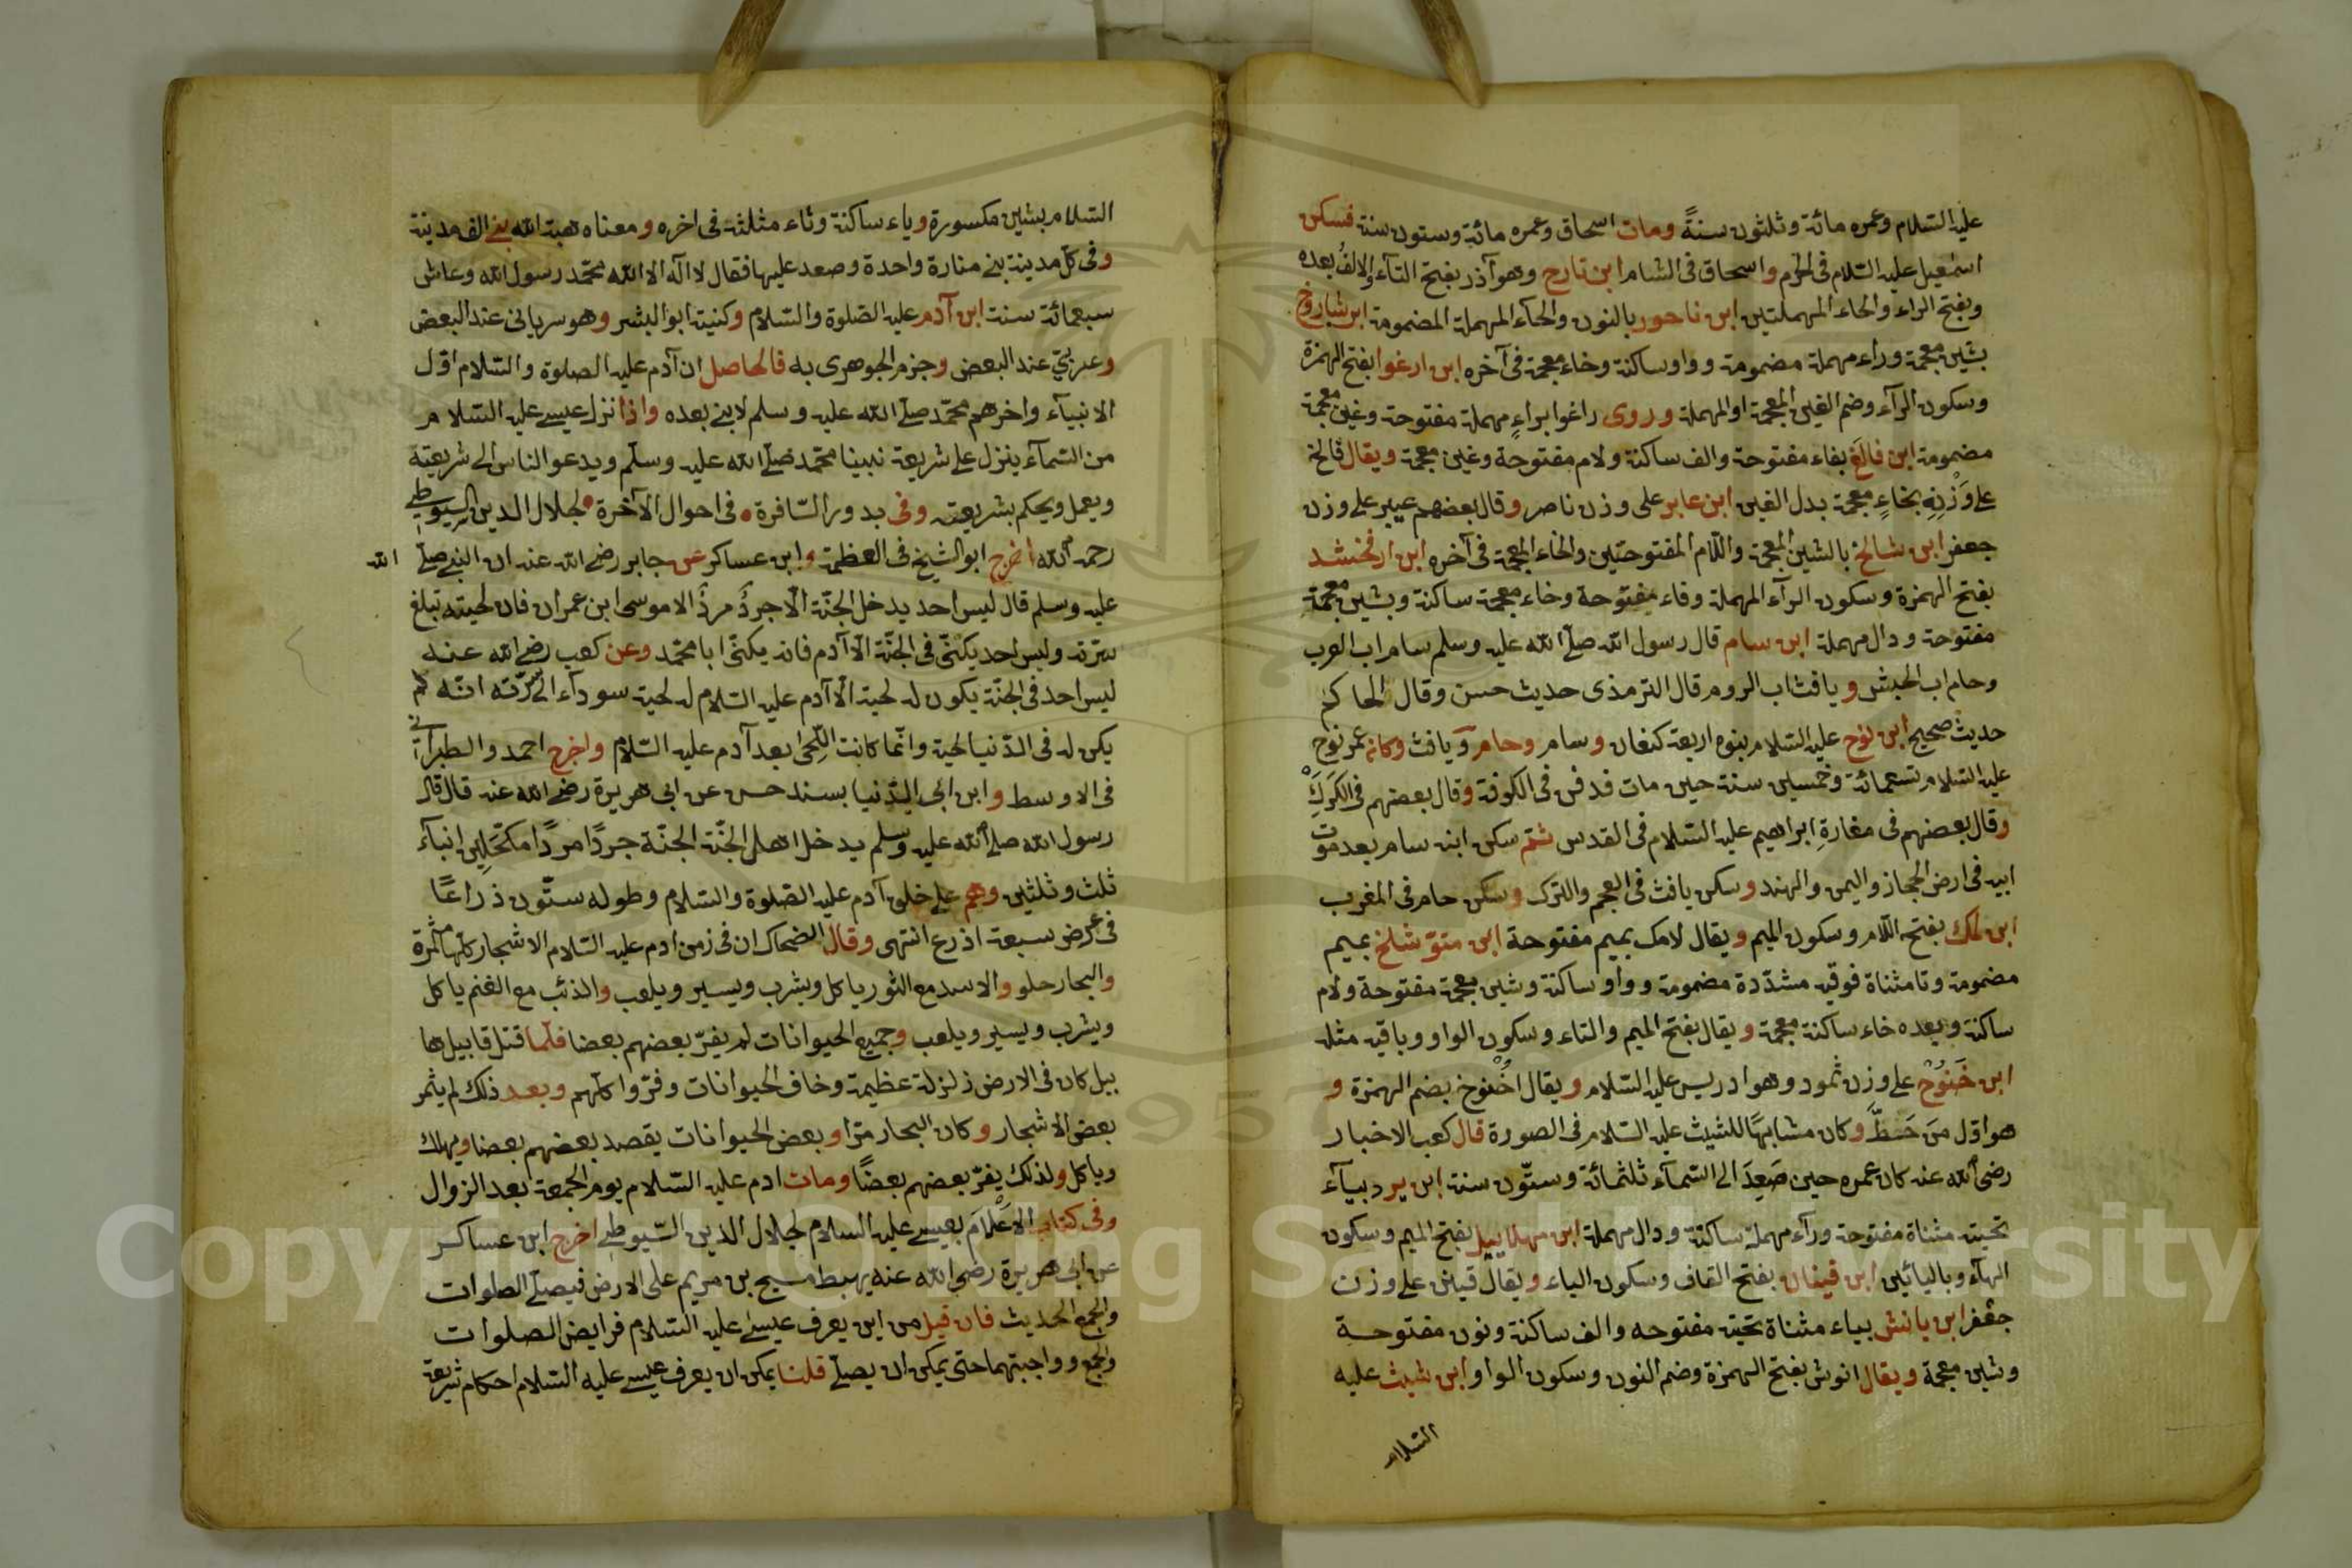 عليه السلام وعمره مائة وثلثون سنةً ومات اسحاق وعمره مائة وستون سنة فسكن
اسمعيل عليه السلام فى الحرم واسحاق فى الشام ابن تارح وهو آذر بفتح التآء والالفُ بعده
وبفتح الراء والحاء المهملتين ابن ناحور بالنون والحآء المهملة المضمومة ابن شاروخ
بشين معجمة وراء مهملة مضمومة وواو ساكنة وخاء معجمة فى آخره ابن ارغوا بفتح الهمزة
وسكون الرآء وضم الغين المعجمة او المهملة وروى راغوا براءٍ مهملة مفتوحة وغين معجمة
مضمومة ابن فالَغَ بفاء مفتوحة والف ساكنة ولام مفتوحة وغين معجمة ويقال فالخ
على وَزْنِهِ بخاءٍ معجمة بدل الغين ابن عابر على وزن ناصر وقال بعضهم عيبر على وزن
جعفر ابن شالخ بالشين المعجمة واللّام المفتوحتين والخاء المعجمة فى آخره ابن ارفخشد
بفتح الهمزة وسكون الرآء المهملة وفاء مفتوحة وخاء معجمة ساكنة وبشين معجمة
مفتوحة ودال مهملة ابن سام قال رسول الله صلّى الله عليه وسلم سام اب العرب
وحام اب الحبش ويافث اب الروم قال الترمذى حديث حسن وقال الحاكم
حديث صحيح ابن نوح عليه السلام بنوه اربعة كنعان وسام وحام ويافث وكان عمر نوح
عليه السلام تسعمائة وخمسين سنة حين مات فدفن فى الكوفة وقال بعضهم فى الكَرَكِ
وقال بعضهم فى مغارةِ ابراهيم عليه السلام فى القدس ثمّ سكن ابنه سام بعد موت
ابيه فى ارض الحجاز واليمن والهند وسكن يافث فى العجم والترك وسكن حام فى المغرب
ابن لمك بفتح اللّام وسكون الميم ويقال لامك بميم مفتوحة ابن متوّشلخ بميم
مضمومة وتا مثناة فوقيه مشدّدة مضمومة وواو ساكنة وشين معجمة مفتوحة ولام
ساكنة وبعده خاء ساكنة معجمة ويقال بفتح الميم والتاء وسكون الواو وباقيه مثله
ابن خَنوُخ على وزن ثمود وهو ادريس عليه السّلام ويقال اخْنوخ بضم الهمزة و
هو اوّل مَن خَطَّ وكان مشابهًا للشيث عليه السّلام فى الصورة قال كعب الاخبار
رضى الله عنه كان عمره حين صَعِدَ الى السّمآء ثلثمائة وستّون سنة ابن يرد بيآء
تحتيّة مثناة مفتوحة ورآء مهملة ساكنة ودال مهملة ابن مهلاييل بفتح الميم وسكون
الهآء وباليائين ابن قينان بفتح القاف وسكون الياء ويقال قينن على وزن
جعفر ابن يانش بياء مثناة تحتيّة مفتوحه والف ساكنة ونون مفتوحة
وشين معجمة ويقال انوش بفتح الهمزة وضم النون وسكون الواو ابن شيث عليه
السّلام
السّلام بشين مكسورة وياء ساكنة وثاء مثلثة فى اخره ومعناه هبة الله بنى الف مدينة
وفى كلّ مدينة بنى منارة واحدة وصعد عليها فقال لا اله الا الله محمّد رسول الله وعاش
سبعمائة سنة ابن آدم عليه الصّلوة والسّلام وكنيته ابو البشر وهو سريانى عند البعض
وعربىّ عند البعض وجزم الجوهرى به فالحاصل ان آدم عليه الصلوة والسّلام اوّل
الانبيآء واخرهم محمّد صلّى الله عليه وسلم لا بنى بعده واذا نزل عيسى عليه السّلام
من السّمآء ينزل على شريعة نبينا محمّد صلّى الله عليه وسلّم ويدعو الناس الى شريعته
ويعمل ويحكم بشريعته وفى بدور السّافرة فى احوال الآخرة لجلال الدين السيوطى
رحمه الله اخرج ابو الشيخ فى العظمة وابن عساكر عن جابر رضى الله عنه ان النبى صلّى الله
عليه وسلم قال ليس احد يدخل الجنّة الّا جردُ مردُ الا موسى ابن عمران فان لحيته تبلغ
سرّته وليس احد يكنىّ فى الجنّة الّا آدم فانه يكنىّ ابا محمّد وعن كعب رضى الله عنه
ليس احد فى الجنّة يكون له لحية الّا آدم عليه السّلام له لحية سودآء الى سرّته انّه لم
يكن له فى الدّنيا لحية وانّما كانت اللِّحىَ بعد آدم عليه السّلام واخرج احمد والطبرانى
فى الاوسط وابن ابى الدّنيا بسند حسن عن ابى هريرة رضى الله عنه قال قال
رسول الله صلى الله عليه وسلم يدخل اهل الجنّة الجنّة جردًا مردًا مكحّلين ابنآء
ثلث وثلثين وهم على خلق آدم عليه الصّلوة والسّلام وطوله ستّون ذراعًا
فى عرض سبعة اذرع انتهى وقال الضحاك ان فى زمن ادم عليه السّلام الاشجار كلّها مثمرة
والبحار حلو والاسد مع الثور ياكل ويشرب ويسير ويلعب والذئب مع الغنم ياكل
ويشرب ويسير ويلعب وجميع الحيوانات لم يفرّ بعضهم بعضا فلمّا قتل قابيل ها
بيل كان فى الارض زلزلة عظيمة وخاف الحيوانات وفرّوا كلّهم وبعد ذلك لم يثمر
بعض الاشجار وكان البحار مرّا وبعض الحيوانات يقصد بعضهم بعضا ويهلك
وياكل ولذلك يفرّ بعضهم بعضًا ومات ادم عليه السّلام يوم الجمعة بعد الزوال
وفى كتاب الاعْلَام بعيسى عليه السلام لجلال الدين السّيوطى اخرج ابن عساكر
عن ابى هريرة رضى الله عنه يهبط مسيح بن مريم على الارض فيصلّى الصلوات
والجمع الحديث فان قيل من اين يعرف عيسى عليه السّلام فرايض الصلوات
والجمع وواجبتهما حتى يمكن ان يصلّى قلنا يمكن ان يعرف عيسى عليه السّلام احكام شريعة
Copyright © King Saud University
1957